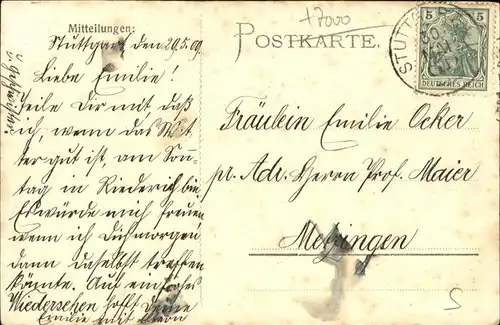 Mitteilungen:
Stuttgart den 20.5.09.
Liebe Emilie!
Teile Dir mit daß
ich, wenn das Wet-
ter gut ist, am Son-
tag in Riederich bin
Es würde mich freuen
wenn ich Dich morgen
dann daselbst treffen
könnte. Auf ein frohes
Wiedersehen hofft Deine
Emilie mit
+7000
POSTKARTE.
STUTTG
5 5
DEUTSCHES REICH
Fräulein Emilie Ocker
pr. Adr. Herrn Prof. Maier
Metzingen
S